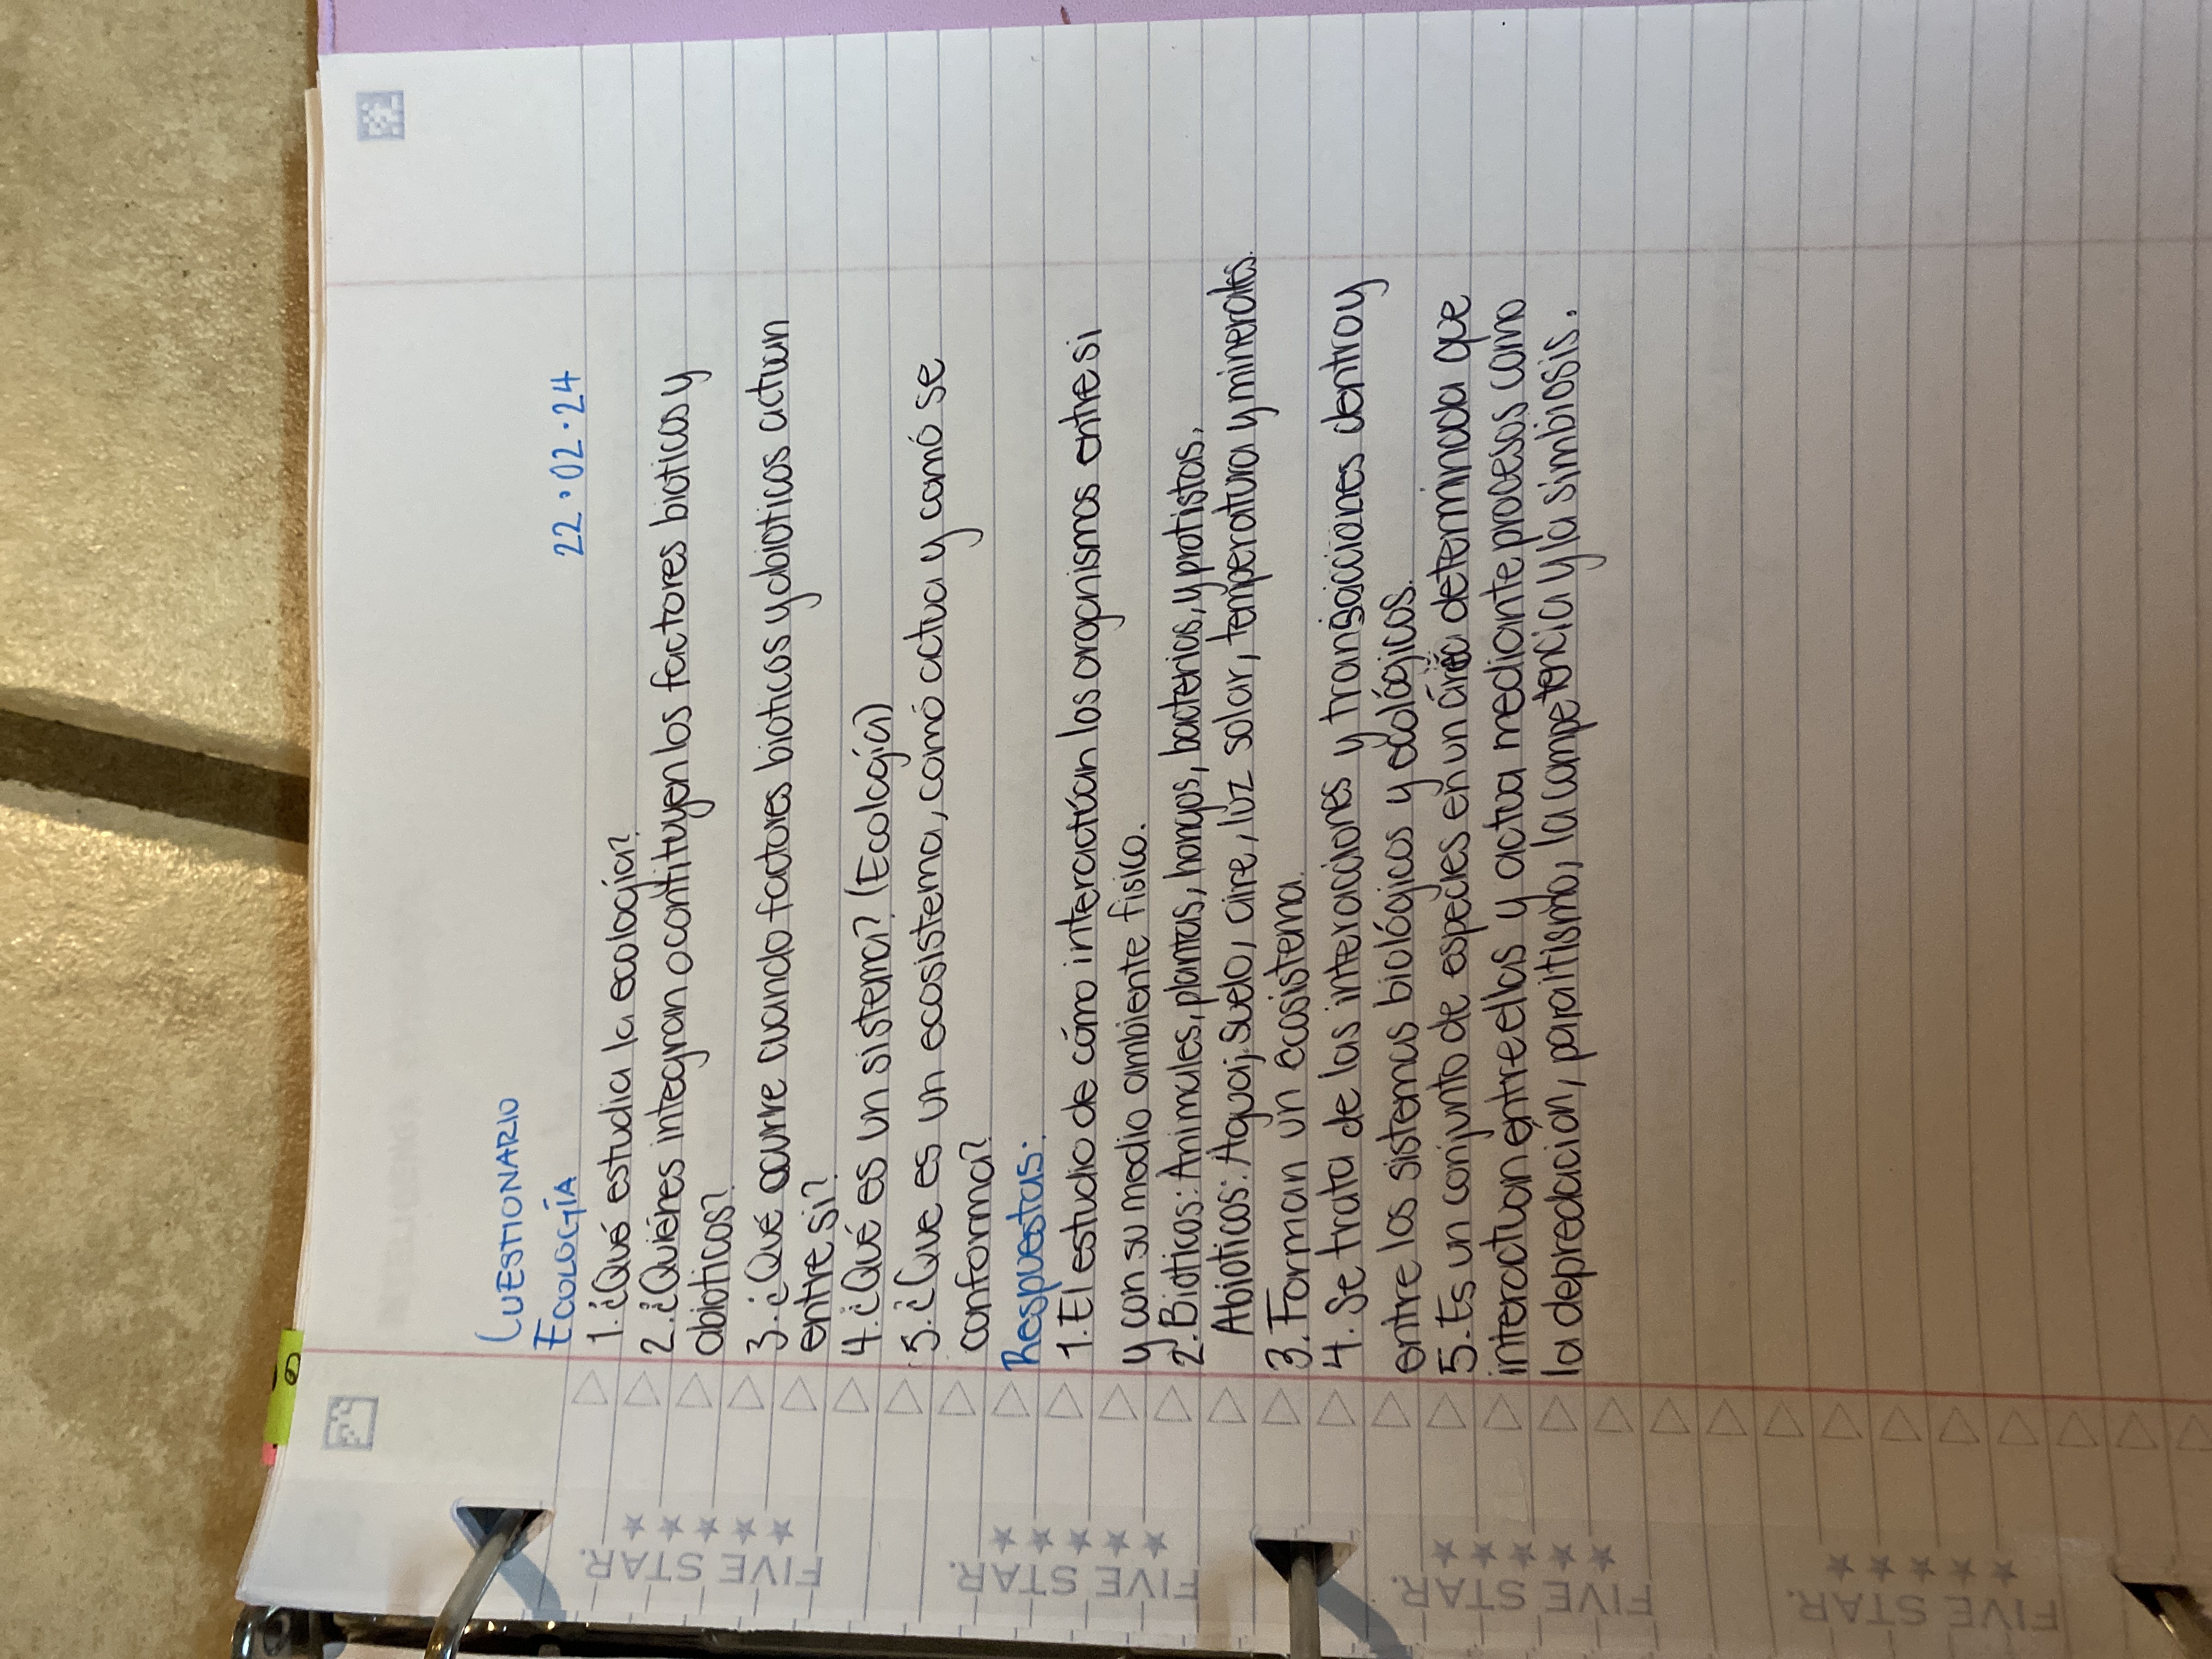 CUESTIONARIO
ECOLOGÍA
22·02·24
1.¿Qué estudia la ecología?
2.¿Quiénes integran o contituyen los factores bioticos y
abioticos?
3.¿Qué ocurre cuando factores bioticos y abioticos actuan
entre si?
4.¿Qué es un sistema? (Ecología)
5.¿Que es un ecosistema, comó actua y comó se
conforma?
Respuestas:
1.El estudio de cómo interactúan los organismos entre si
y con su medio ambiente fisico.
2.Bioticos: Animales, plantas, hongos, bacterias, y protistas.
Abioticos: Agua, suelo, aire, luz solar, temperatura y minerales.
3.Forman un ecosistema.
4. Se trata de las interaciones y transiaciones dentro y
entre los sistemas biológicos y ecológicos.
5.Es un conjunto de especies en un área determinada que
interactuan entre ellas y actua mediante procesos como
la depredacion, parsitismo, la competencia y la simbiosis.
FIVE STAR.
FIVE STAR.
FIVE STAR.
FIVE STAR.